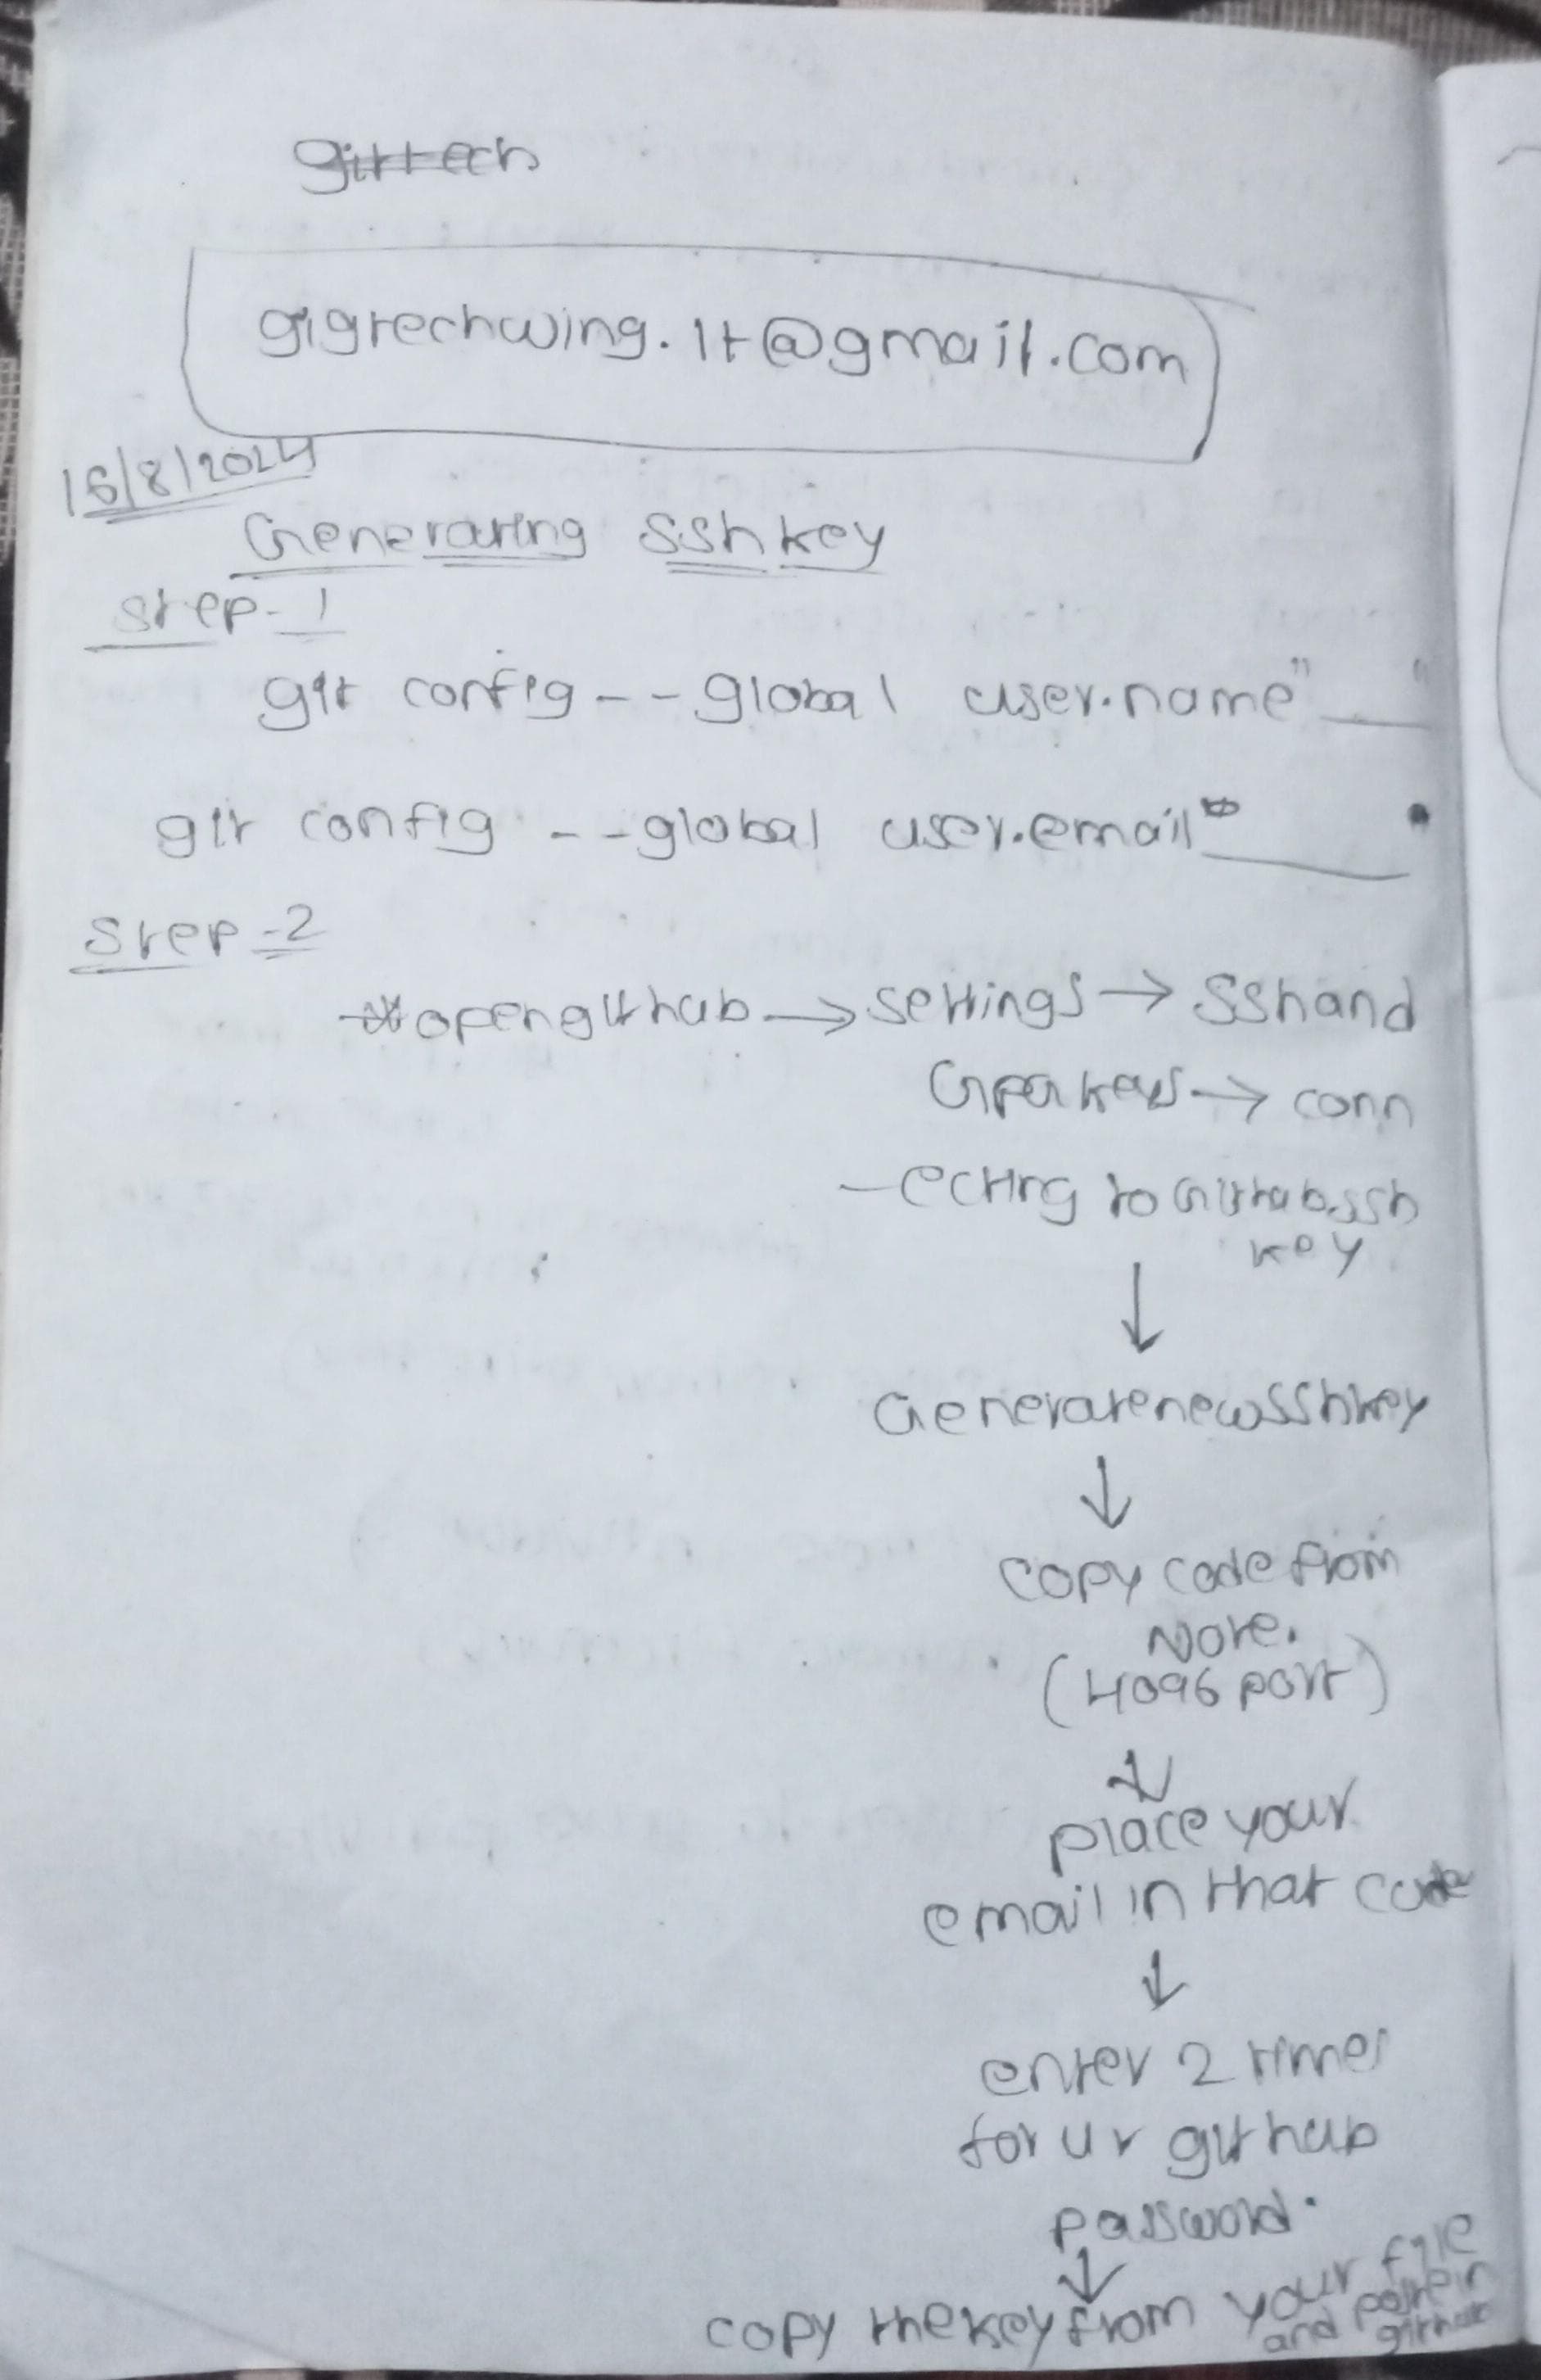 gittech
gigtechwing.1t@gmail.com
16/8/2024
Generating SSh key
Step-1
git config --global user.name"___"
git config --global user.email"____"
Step-2
opengithub → settings → SSh and
Gpg keys → conn
-ecting to Github.ssh
key
↓
Generate new SSh key
↓
copy code from
Note.
(4096 part)
↓
place your
email in that code
↓
enter 2 times
for ur github
password.
↓
copy the key from your file
and paste in
github